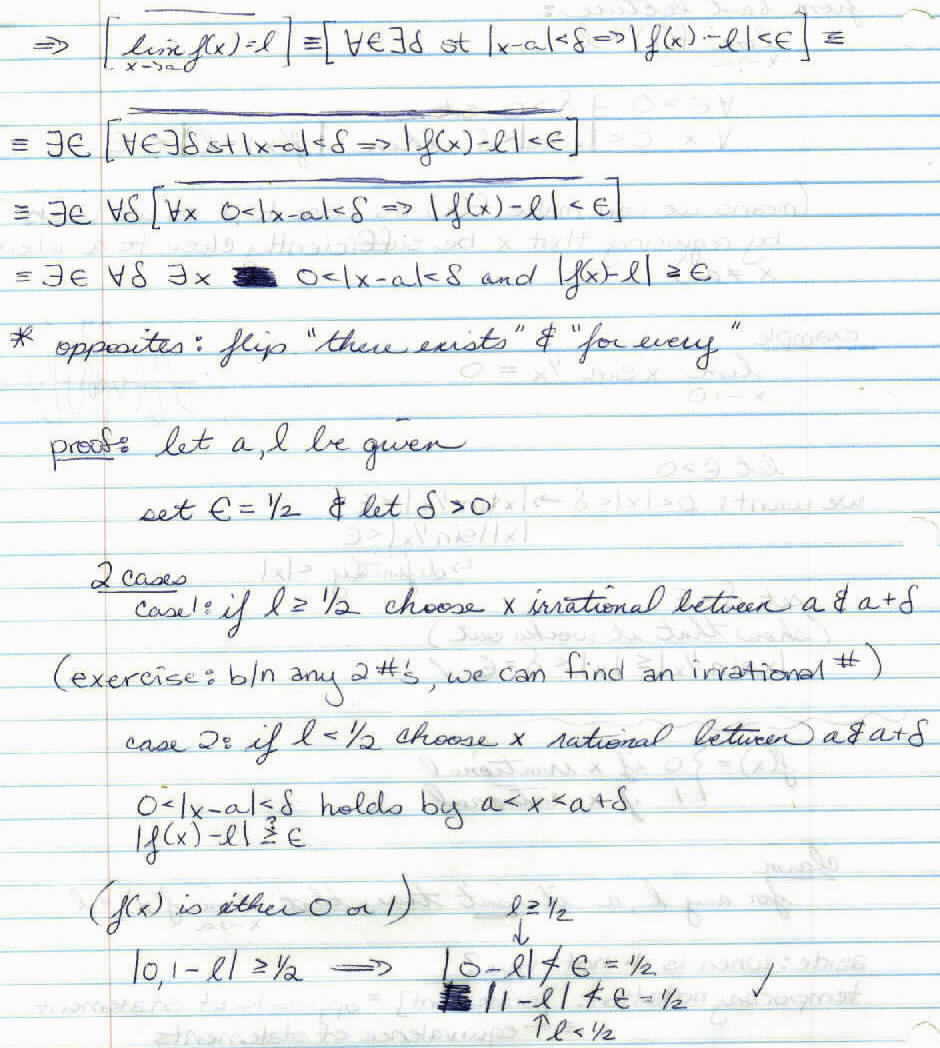 ⇒ [ \overline{lim_{x→a} f(x) = l} ] ≡ [ \overline{∀ε ∃δ st |x-a|<δ ⇒ |f(x)-l|<ε} ] ≡
≡ ∃ε [ \overline{∀ε∃δ st |x-a|<δ => |f(x)-l|<ε} ]
≡ ∃ε ∀δ [ \overline{∀x 0<|x-a|<δ => |f(x)-l|<ε} ]
≡ ∃ε ∀δ ∃x 0<|x-a|<δ and |f(x)-l| ≥ ε
* opposites: flip "there exists" & "for every"
proof: let a, l be given
set ε = 1/2 & let δ > 0
2 cases
case 1: if l ≥ 1/2 choose x irrational between a & a+δ
(exercise: b/n any 2 #'s, we can find an irrational #)
case 2: if l < 1/2 choose x rational between a & a+δ
0<|x-a|<δ holds by a<x<a+δ
|f(x)-l| ≥? ε
(f(x) is either 0 or 1)
l ≥ 1/2
↓
|0,1-l| ≥ 1/2 ⇒ |0-l| ≮ ε = 1/2
|1-l| ≮ ε = 1/2 ✓
↑ l < 1/2